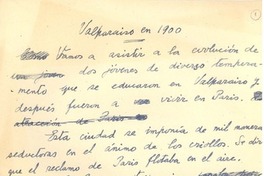 1
Valparaiso en 1900
Como Vamos a asistir a la evolución de
dos jóvenes de diverso tempera-
mento que se educaron en Valparaiso y
después fueron a vivir en Paris.
atracción de Paris
Esta ciudad se imponía de mil maneras
seductoras en el ánimo de los criollos. Se diría
que el reclamo de Paris flotaba en el aire.